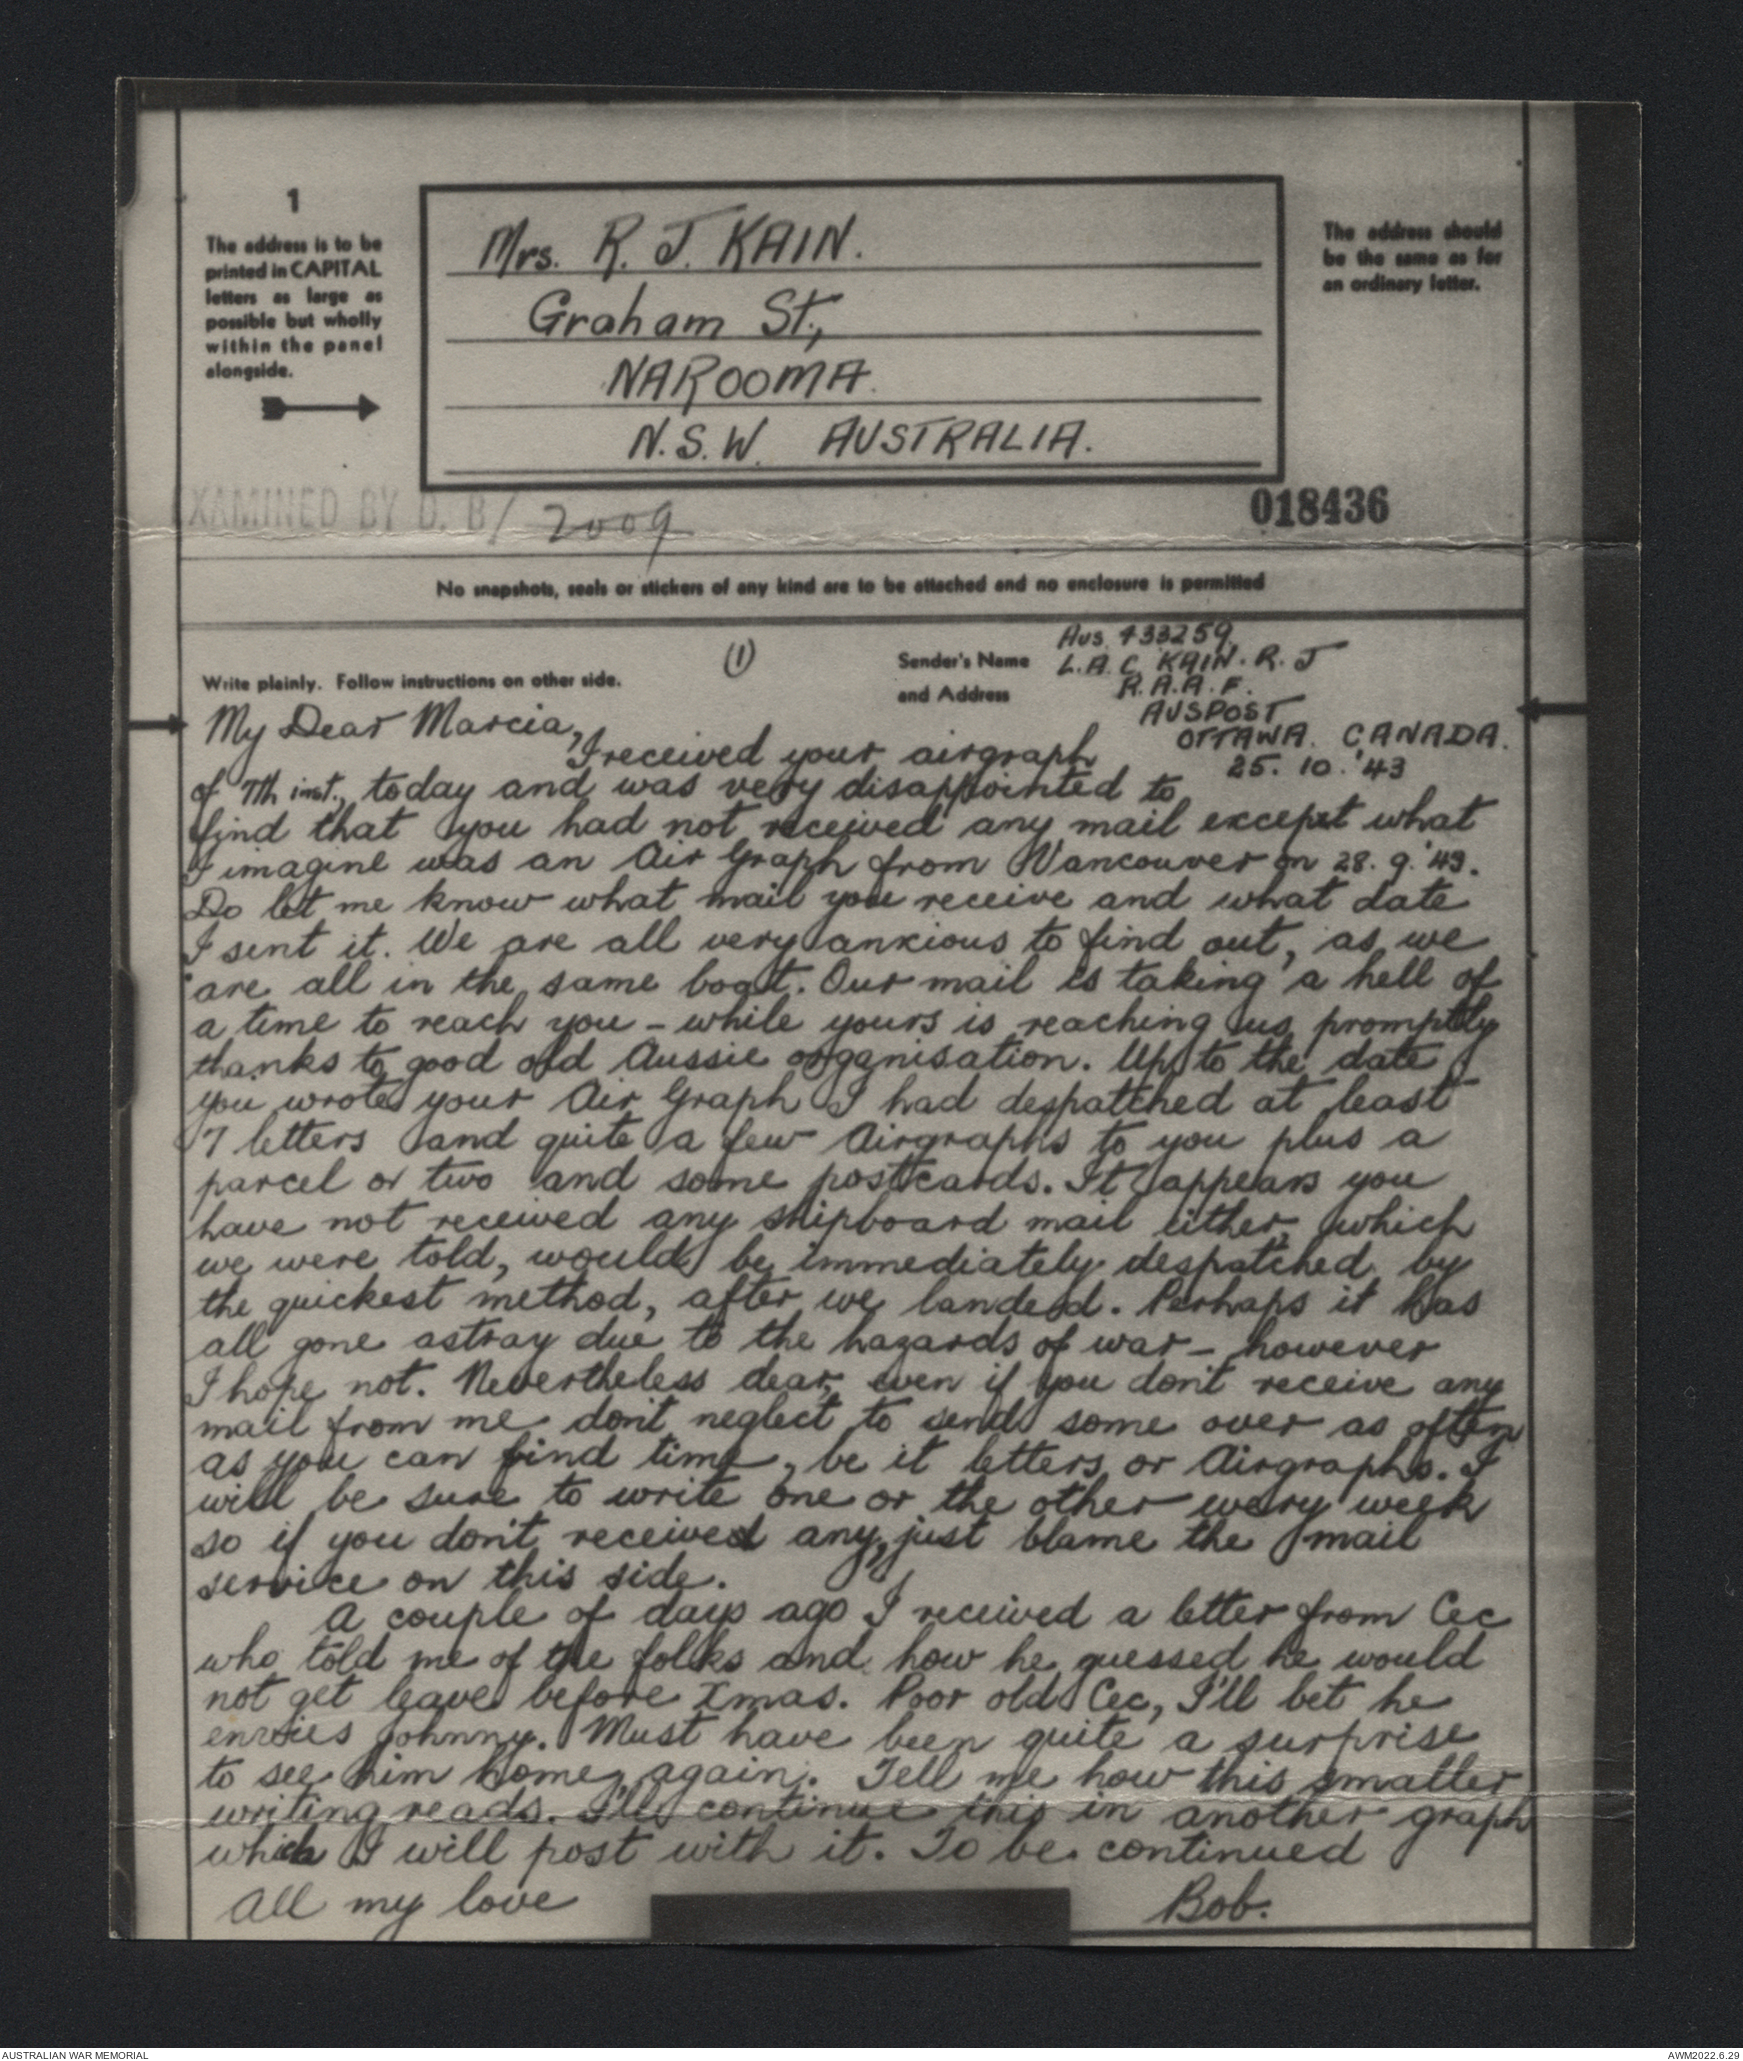 1
The address is to be
printed in CAPITAL
letters as large as
possible but wholly
within the panel
alongside.
Mrs. R. J. KAIN.
Graham St.,
NAROOMA.
N.S.W. AUSTRALIA.
The address should
be the same as for
an ordinary letter.
EXAMINED BY D. B/ 2009
018436
No snapshots, seals or stickers of any kind are to be attached and no enclosure is permitted
Write plainly. Follow instructions on other side.
(1)
Sender's Name
and Address
Aus. 433259
L.A.C. KAIN. R. J
R.A.A.F.
AUSPOST
OTTAWA. CANADA.
25. 10. '43
My Dear Marcia,
I received your airgraph
of 7th inst., today and was very disappointed to
find that you had not received any mail except what
I imagine was an Air Graph from Vancouver on 28. 9. '43.
Do let me know what mail you receive and what date
I sent it. We are all very anxious to find out, as we
are all in the same boat. Our mail is taking a hell of
a time to reach you - while yours is reaching us promptly
thanks to good old Aussie organisation. Up to the date
you wrote your Air Graph I had despatched at least
7 letters and quite a few Airgraphs to you plus a
parcel or two and some postcards. It appears you
have not received any shipboard mail either, which
we were told, would be immediately despatched by
the quickest method, after we landed. Perhaps it has
all gone astray due to the hazards of war - however
I hope not. Nevertheless dear, even if you don't receive any
mail from me don't neglect to send some over as often
as you can find time, be it letters or Airgraphs. I
will be sure to write one or the other every week
so if you don't received any, just blame the mail
service on this side.
A couple of days ago I received a letter from Cec
who told me of the folks and how he guessed he would
not get leave before Xmas. Poor old Cec, I'll bet he
envies Johnny. Must have been quite a surprise
to see him home again. Tell me how this smaller
writing reads. I'll continue this in another graph
which I will post with it. To be continued
All my love
Bob.
AUSTRALIAN WAR MEMORIAL
AWM2022.6.29